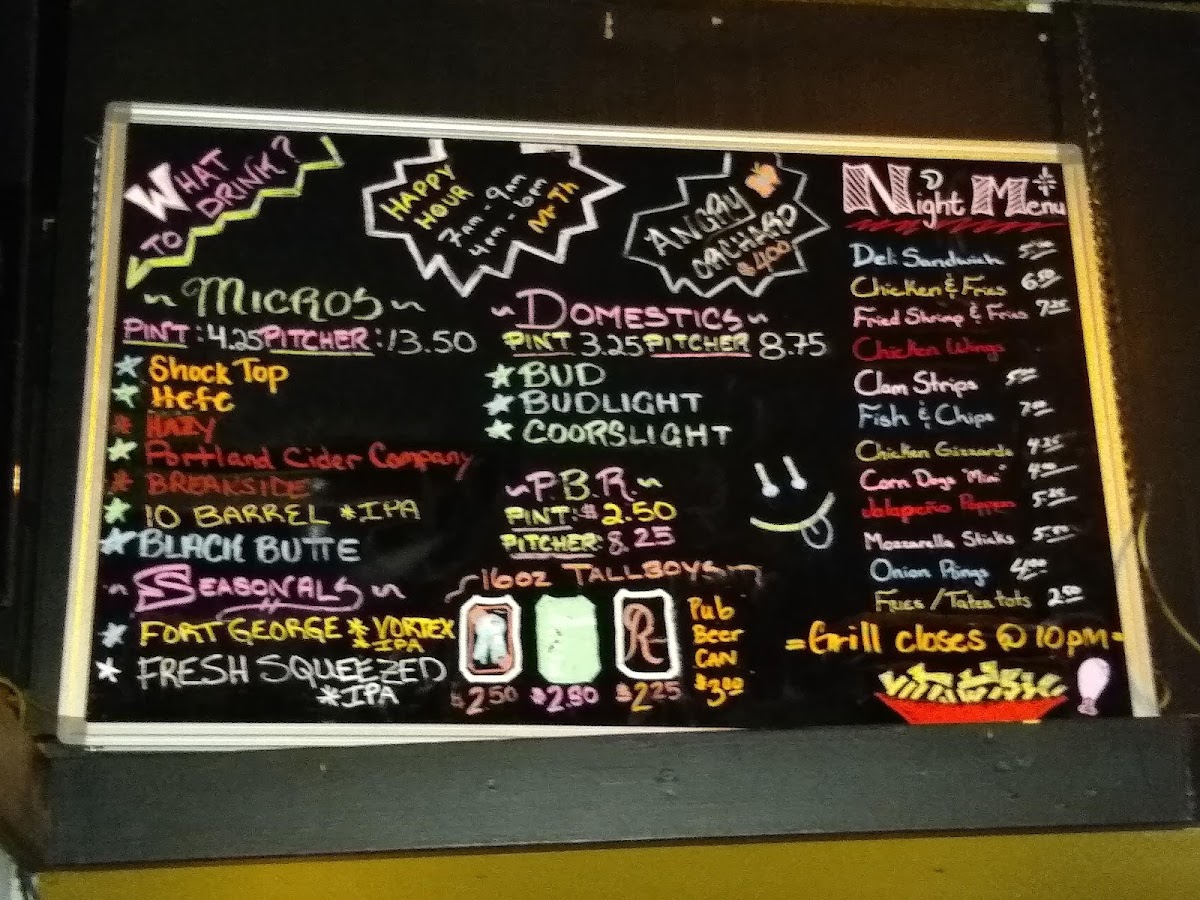 WHAT
TO DRINK?
HAPPY
HOUR
7am-9am
4pm-6pm
ANGRY
ORCHARD
$4.00
~MICROS~
PINT: 4.25 PITCHER: 13.50
* SHOCK TOP
* HEFE
* HAZY
* Portland Cider Company
* BREAKSIDE
* 10 BARREL *IPA
* BLACK BUTTE
~SEASONALS~
* FORT GEORGE * VORTEX
*IPA
* FRESH SQUEEZED
*IPA
~DOMESTICS~
PINT 3.25 PITCHER 8.75
* BUD
* BUDLIGHT
* COORSLIGHT
~P.B.R.~
PINT: $2.50
PITCHER: 8.25
~16oz TALLBOYS~
R
R
$2.50 $2.50 $2.25
Pub
Beer
CAN
$3.00
Night Menu
Deli Sandwich 5.50
Chicken & Fries 6.50
Fried Shrimp & Fries 7.25
Chicken Wings
Clam Strips 5.00
Fish & Chips 7.00
Chicken Gizzards 4.25
Corn Dogs "Mini" 4.00
Jalapeño Poppers 5.25
Mozzarella Sticks 5.50
Onion Rings 4.00
Fries/Tatertots 2.50
=Grill closes @ 10pm=